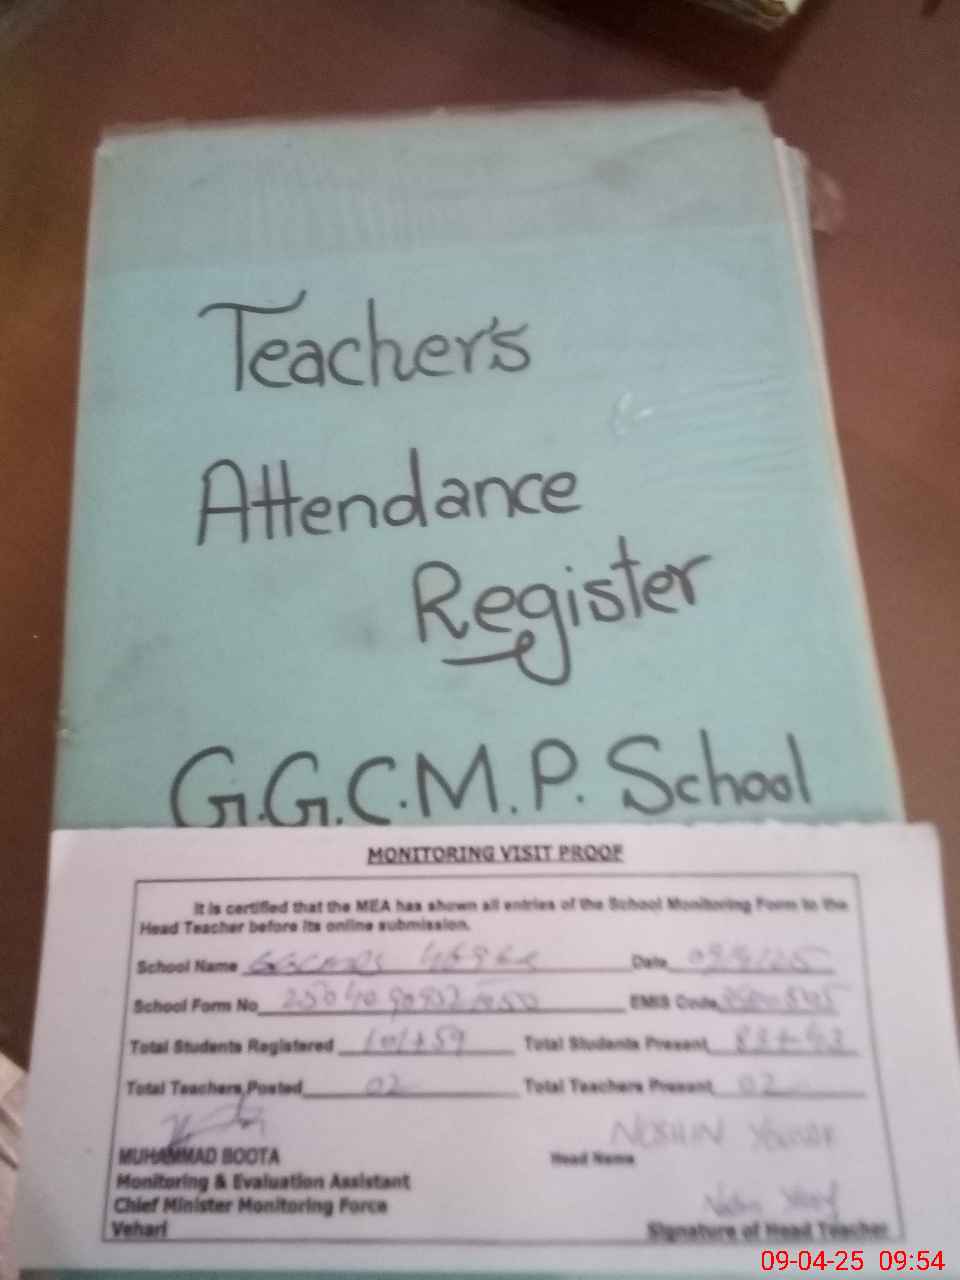 Teacher's
Attendance
Register
G.G.C.M.P. School
MONITORING VISIT PROOF
It is certified that the MEA has shown all entries of the School Monitoring Form to the
Head Teacher before its online submission.
School Name Date
School Form No EMIS Code
Total Students Registered 101+59 Total Students Present
Total Teachers Posted 02 Total Teachers Present 02
NOSHIN
MUHAMMAD BOOTA Head Name
Monitoring & Evaluation Assistant
Chief Minister Monitoring Force
Vehari Signature of Head Teacher
09-04-25 09:54